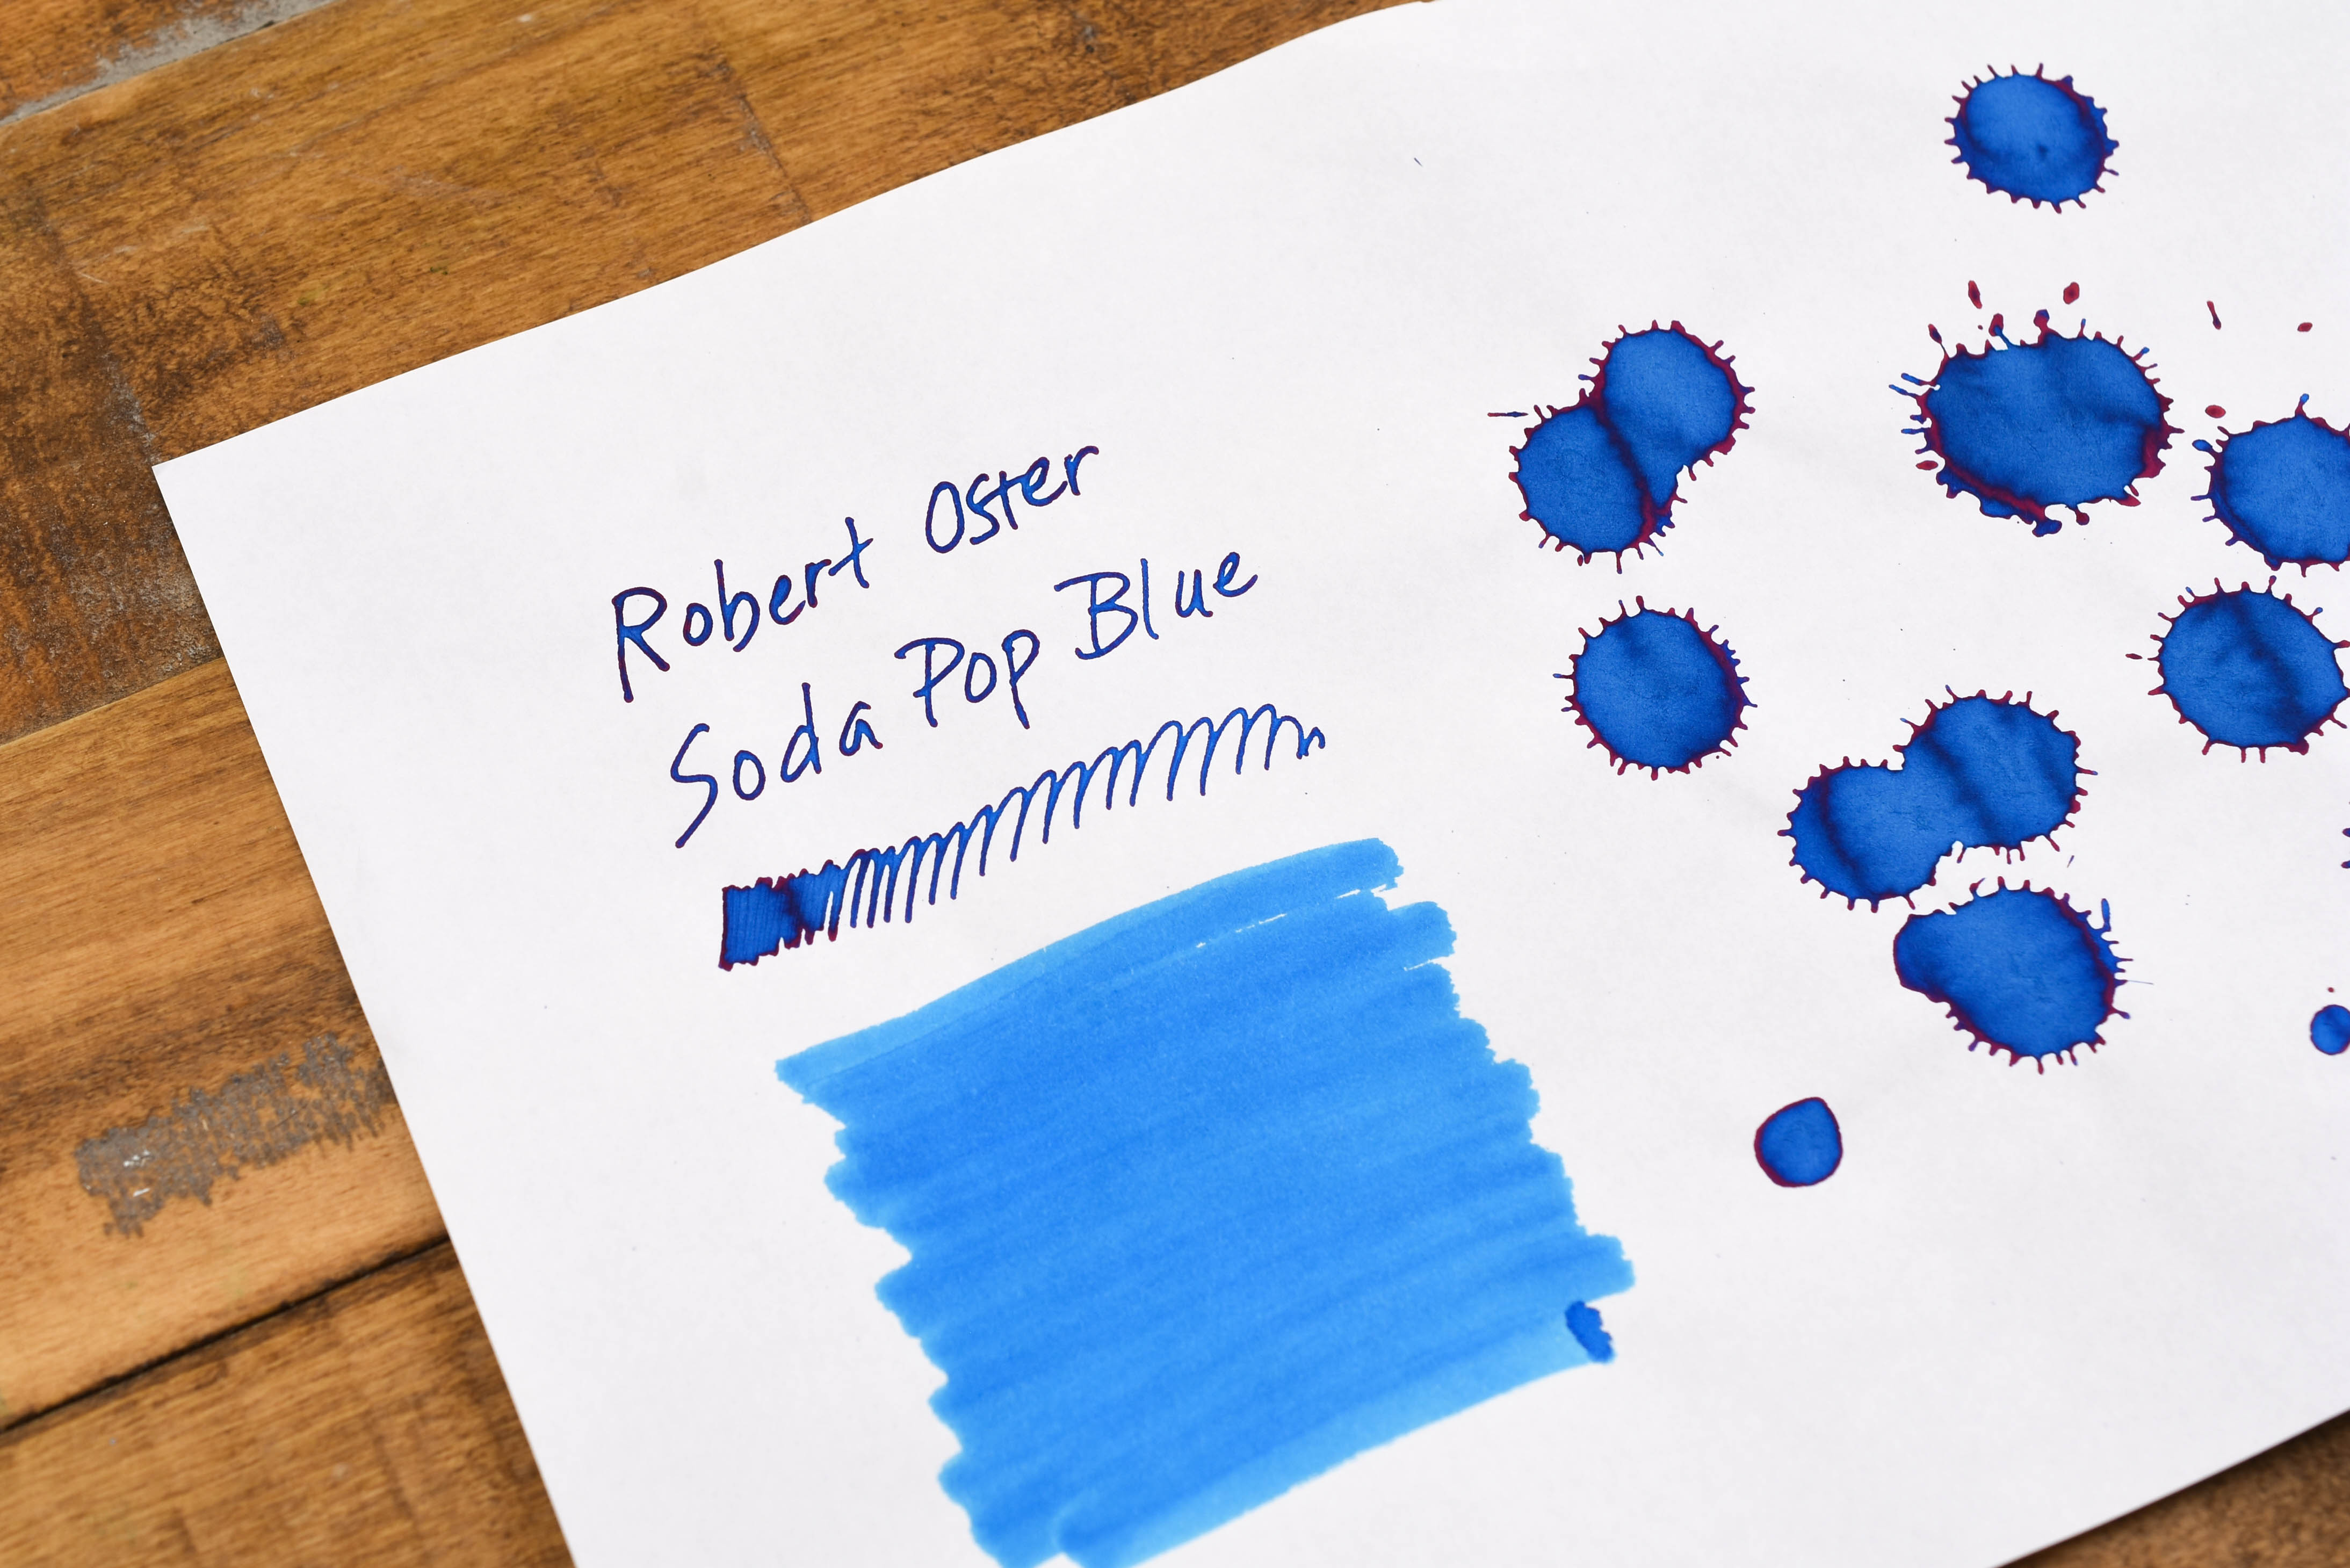 Robert Oster
Soda Pop Blue